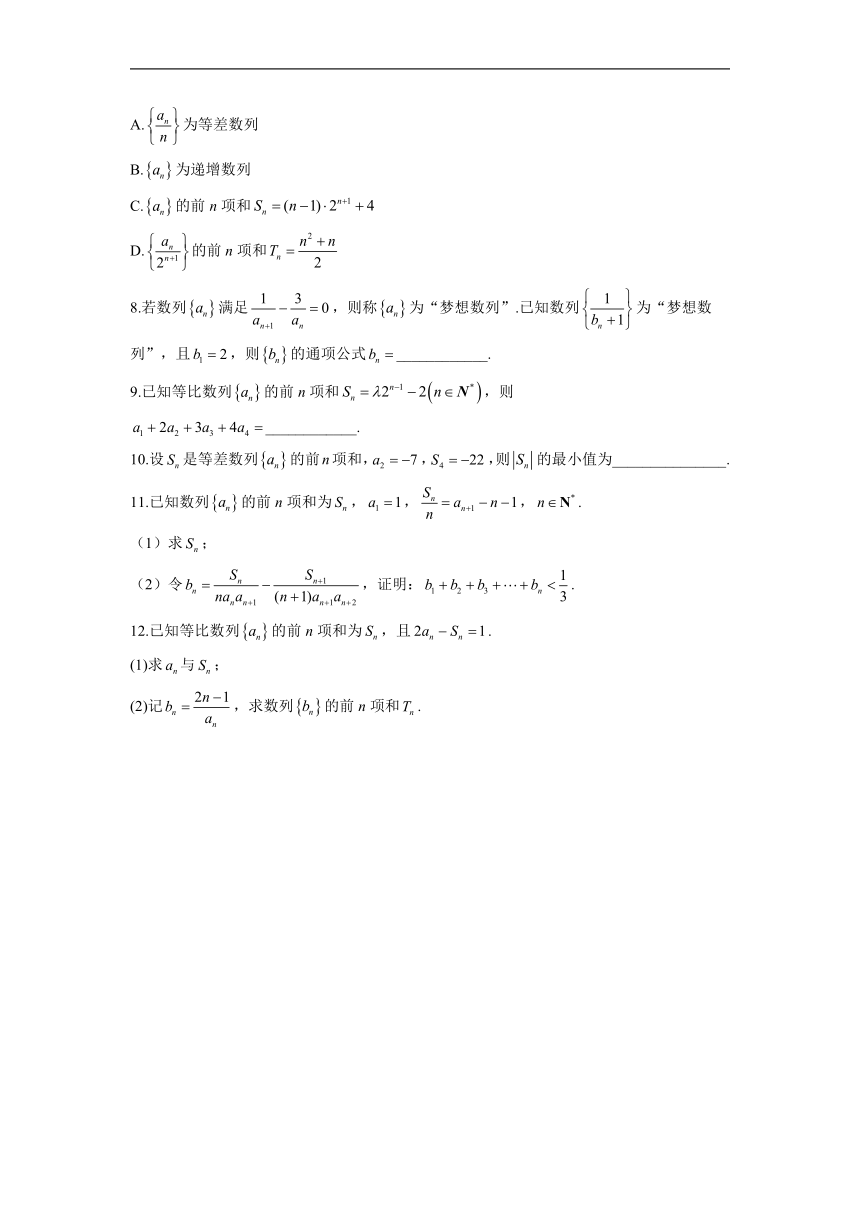 A. {a_n/n} 为等差数列
B. {a_n} 为递增数列
C. {a_n} 的前 n 项和 S_n = (n−1)·2^{n+1} + 4
D. {a_n/2^{n+1}} 的前 n 项和 T_n = (n²+n)/2
8.若数列 {a_n} 满足 1/a_{n+1} − 3/a_n = 0，则称 {a_n} 为“梦想数列”.已知数列 {1/(b_n+1)} 为“梦想数
列”，且 b_1 = 2，则 {b_n} 的通项公式 b_n = ____________.
9.已知等比数列 {a_n} 的前 n 项和 S_n = λ2^{n−1} − 2(n∈N*)，则
a_1 + 2a_2 + 3a_3 + 4a_4 = ____________.
10.设 S_n 是等差数列 {a_n} 的前 n 项和, a_2 = −7 , S_4 = −22 ,则 |S_n| 的最小值为_______________.
11.已知数列 {a_n} 的前 n 项和为 S_n，a_1 = 1，S_n/n = a_{n+1} − n − 1，n∈N*.
（1）求 S_n；
（2）令 b_n = S_n/(na_na_{n+1}) − S_{n+1}/((n+1)a_{n+1}a_{n+2})，证明：b_1 + b_2 + b_3 + ⋯ + b_n < 1/3.
12.已知等比数列 {a_n} 的前 n 项和为 S_n，且 2a_n − S_n = 1.
(1)求 a_n 与 S_n；
(2)记 b_n = (2n−1)/a_n，求数列 {b_n} 的前 n 项和 T_n.